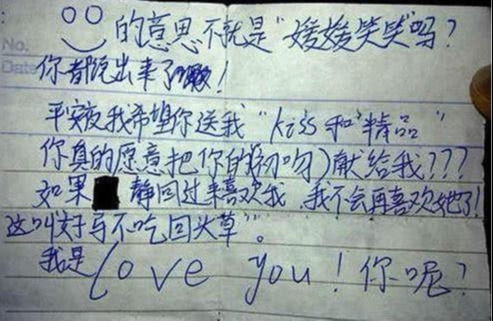 No.
的意思不就是“媛媛笑笑”吗？
Date
你都说出来了！
平安夜我希望你送我“kiss和精品”
你真的愿意把你的(初吻)献给我???
如果 静回过来喜欢我，我不会再喜欢她了!
这叫“好马不吃回头草”。
我是love you！你呢？